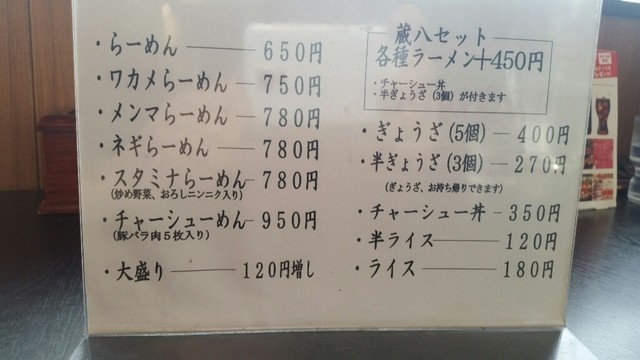 ・らーめん ――― 650円
・ワカメらーめん ― 750円
・メンマらーめん ― 780円
・ネギらーめん ― 780円
・スタミナらーめん ― 780円
(炒め野菜、おろしニンニク入り)
・チャーシューめん ― 950円
(豚バラ肉5枚入り)
・大盛り ――― 120円増し
蔵八セット
各種ラーメン+450円
・チャーシュー丼
・半ぎょうざ (3個) が付きます
・ぎょうざ (5個) ― 400円
・半ぎょうざ (3個) ― 270円
(ぎょうざ、お持ち帰りできます)
・チャーシュー丼 ― 350円
・半ライス ――― 120円
・ライス ――― 180円